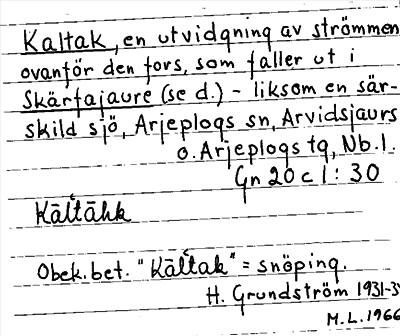 Kaltak, en utvidgning av strömmen
ovanför den fors, som faller ut i
Skärfajaure (se d.) - liksom en sär-
skild sjö, Arjeplogs sn, Arvidsjaurs
o. Arjeplogs tg, Nb.l.
Gn 20 c 1 : 30
Kāĺtāhk
Obek. bet. "Kāĺtak" = snöping.
H. Grundström 1931-3
M.L. 1966